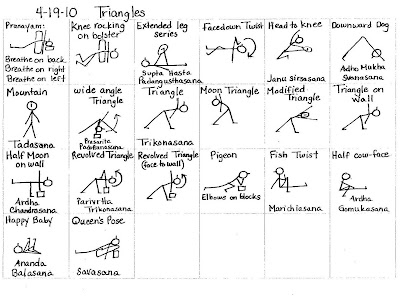 4-19-10 Triangles
Pranayam:
Breathe on back
Breathe on right
Breathe on left
Knee rocking
on bolster
Extended leg
series
Supta Hasta
Padangusthasana
Facedown Twist
Head to knee
Janu Sirsasana
Downward Dog
Adho Mukha
Svanasana
Mountain
Tadasana
wide angle
Triangle
Prasarita
Padottanasana
Triangle
Trikonasana
Moon Triangle
Modified
Triangle
Triangle on
Wall
Half Moon
on wall
Ardha
Chandrasana
Revolved Triangle
Parivrtha
Trikonasana
Revolved Triangle
(face to wall)
Pigeon
Elbows on blocks
Fish Twist
Marichiasana
Half cow-face
Ardha
Gomukasana
Happy Baby
Ananda
Balasana
Queen's Pose
Savasana